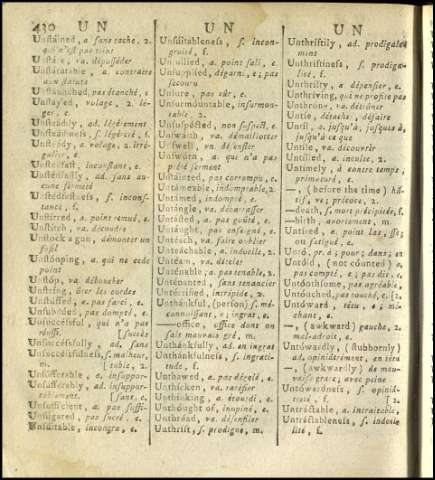 430 U N
U N
U N
Unstáined, a. sans tache. 2.
qui n'est pas teint
Unstáte, va. déposséder
a. contraire
aux statuts
pas étanché, e
Unstáyed, volage, 2. lé-
ger, e.
Unstéadily, ad. légérement
Unstéadiness, s. légéreté, f.
Unstéady, a. volage, 2. irré-
gulier, e.
Unstédfast, inconstant, e.
Unstédfastly, ad. sans au-
cune fermeté
Unstédfastness, s. incons-
tance, f.
Unstírred, a. point remué, e.
Unstítch, va. découdre
Unstóck a gun, démonter un
fusil
Unstóoping, a. qui ne cede
point
Unstóp, va. déboucher
Unstríng, ôter les cordes
Unstúffed, a. pas farci, e.
Unsubdúed, pas dompté, e.
Unsuccésful, qui n'a pas
réussi. [succès
Unsuccésfully, ad. sans
Unsuccésfulness, s. malheur,
m. [rable, 2.
Unsúfferable, a. insuppor-
Unsúfferably, ad. insuppor-
tablement. [sant, e.
Unsufficient, a. pas suffi-
Unsúgared, pas sucré, e.
Unsúitable, incongru, e.
Unsúitableness, s. incon-
gruité, f.
Unsullied, a. point sali, e.
Unsupplíed, dégarni, e; pas
secouru
Unsúre, pas sûr, e.
Unsurmóuntable, insurmon-
table, 2.
Unsuspécted, non suspect, e.
Unswáth, va. démaillotter
Unswéll, va. désenfler
Unswórn, a. qui n'a pas
prêté serment
Untáinted, pas corrompu, e.
Untámeable, indomptable, 2.
Untámed, indompté, e.
Untángle, va. débarrasser
Untásted, a. pas goûté, e.
Untáught, pas enseigné, e.
Untéach, va. faire oublier
Untéachable, a. indocile, 2.
Untéam, va. dételer
Unténable, a. pas tenable, 2.
Unténanted, sans tenancier
Untérrified, intrépide, 2.
Unthánkful, (person) s. mé-
connoissant, e; ingrat, e.
—office, office dont on
sait mauvais gré, m.
Unthánkfully, ad. en ingrat
Unthánkfulness, s. ingrati-
tude, f.
Unthawed, a. pas dégelé, e.
Unthícken, va. raréfier
Unthínking, a. étourdi, e.
Unthóught of, inopiné, e.
Unthréad, va. défenfiler
Unthríft, s. prodigue, m.
Unthríftily, ad. prodigale-
ment
Unthríftiness, s. prodiga-
lité, f.
Unthrífty, a. dépensier, e.
Unthríving, qui ne profite pas
Unthróne, va. détrôner
Untíe, détaché, défaire
Untíl, a. jusqu'à; jusques à,
jusqu'à ce que
Untíle, va. découvrir
Untílled, a. inculte, 2.
Untímely, à contre temps;
prématuré, e.
—, (before the time) hâ-
tif, ve; précoce, 2.
—death, s. mort précipitée, f.
—birth, avortement, m.
Untíred, a. point las, sse;
ou fatigué, e.
Untó, pr. à; pour; dans; en
Untóld, (not counted) a.
pas compté, e; pas dit, e.
Untóothsome, pas agréable, 2.
Untóuched, pas touché, e. [2.
Untóward, têtu, e; mé-
chant, e.
—, (awkward) gauche, 2.
mal-adroit, e.
Untówardly, (stubbornly)
ad. opiniâtrément, en têtu
—, (awkwardly) de mau-
vaise grace; avec peine
Untówardness, s. opiniâ-
treté, f. [2.
Untráctable, a. intraitable,
Untráctableness, s. indoci-
lité, f.